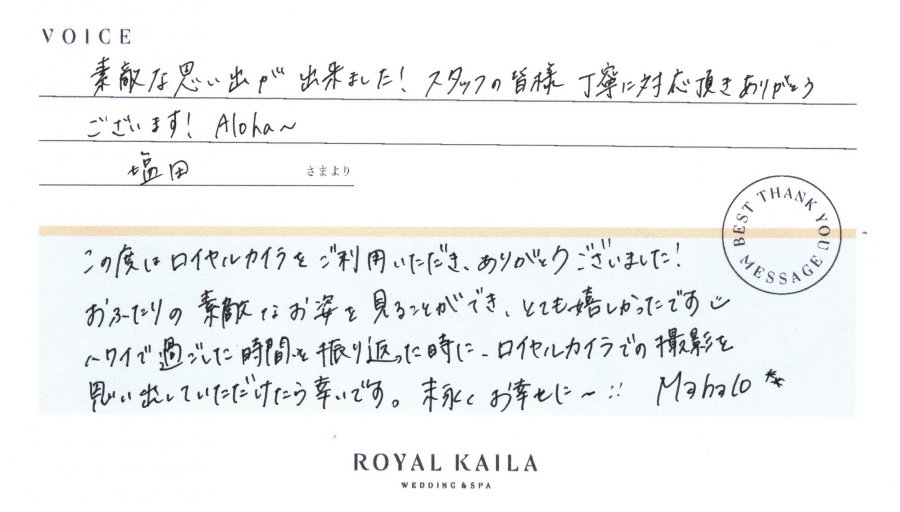 VOICE
素敵な思い出が出来ました！スタッフの皆様 丁寧に対応頂きありがとう
ございます！ Aloha〜
塩田 さまより
BEST THANK YOU MESSAGE
この度はロイヤルカイラをご利用いただき、ありがとうございました！
おふたりの素敵なお姿を見ることができ、とても嬉しかったです
ハワイで過ごした時間を振り返った時に、ロイヤルカイラでの撮影を
思い出していただけたら幸いです。末永くお幸せに〜 Mahalo
ROYAL KAILA
WEDDING & SPA